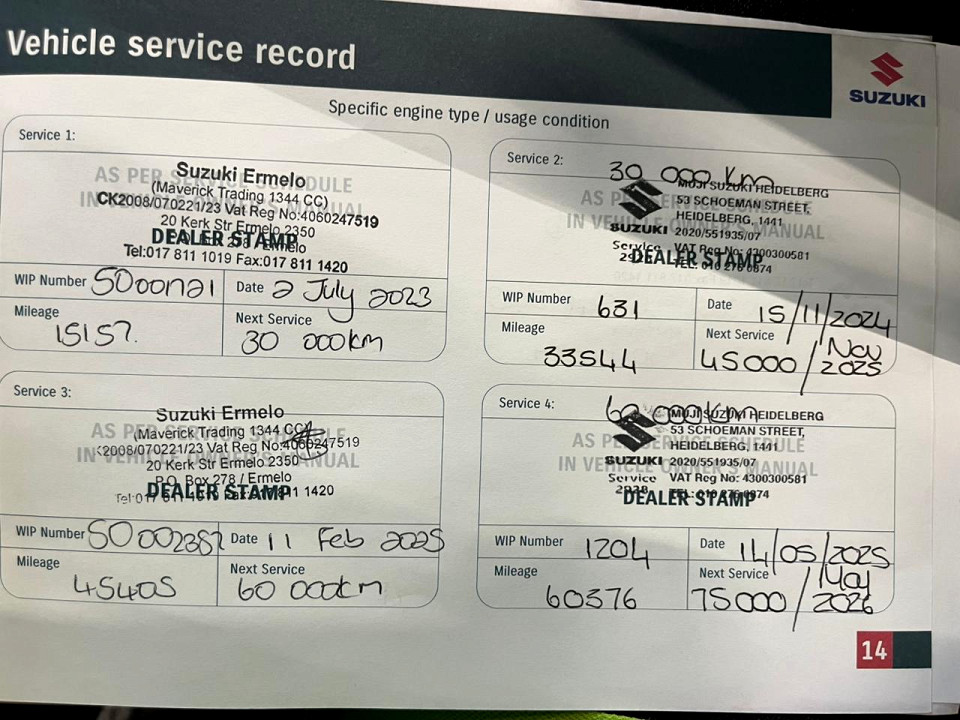 Vehicle service record
SUZUKI
Specific engine type / usage condition
Service 1:
AS PER SERVICE SCHEDULE
IN VEHICLE OWNER'S MANUAL
Suzuki Ermelo
(Maverick Trading 1344 CC)
CK2008/070221/23 Vat Reg No:4060247519
20 Kerk Str Ermelo 2350
Ermelo
DEALER STAMP
Tel:017 811 1019 Fax:017 811 1420
WIP Number 50001721 Date 2 July 2023
Mileage 15157. Next Service 30 000km
Service 2: 30 000 km
AS PER SERVICE SCHEDULE
IN VEHICLE OWNER'S MANUAL
MUJI SUZUKI HEIDELBERG
53 SCHOEMAN STREET,
HEIDELBERG, 1441
SUZUKI 2020/551935/07
Service VAT Reg No: 4300300581
DEALER STAMP
WIP Number 631 Date 15/11/2024
Mileage 33544 Next Service 45000/Nov 2025
Service 3:
AS PER SERVICE SCHEDULE
IN VEHICLE OWNER'S MANUAL
Suzuki Ermelo
(Maverick Trading 1344 CC)
2008/070221/23 Vat Reg No:4060247519
20 Kerk Str Ermelo 2350
P.O. Box 278 / Ermelo
DEALER STAMP
811 1420
WIP Number 50002352 Date 11 Feb 2025
Mileage 45405 Next Service 60 000km
Service 4: 60 000km
AS PER SERVICE SCHEDULE
IN VEHICLE OWNER'S MANUAL
MUJI SUZUKI HEIDELBERG
53 SCHOEMAN STREET,
HEIDELBERG, 1441
SUZUKI 2020/551935/07
Service VAT Reg No: 4300300581
DEALER STAMP
WIP Number 1204 Date 14/05/2025
Mileage 60376 Next Service 75000/May 2026
14